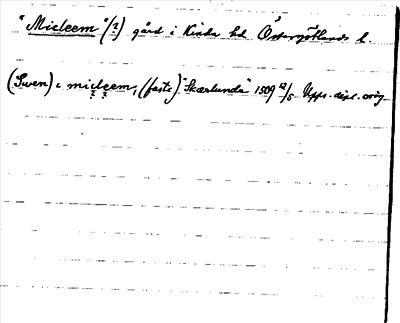 "Micleem" (?) gård i Kinda hd Östergötlands l.
(Swen) i micleem, (faste) "Skærlunda" 1509 12/5 Upps. dipl. orig.